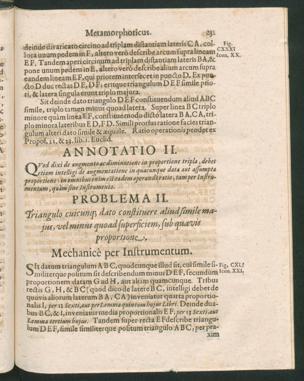 Metamorphoticus. 231
deinde distracto circino ad triplam distantiam lateris CA, col-
loca unum pedem in F, altero verò describe arcum supra lineam
EF. Tandem aperi circinum ad triplam distantiam lateris BA, &
pone unum pedem in E, altero verò describe alium arcum supra
eandem lineam EF, qui priorem intersecet in puncto D. Ex pun-
cto D duc rectas DE, DF: eritque triangulum DEF simile prio-
ri, & latera singula erunt triplo majora.
Fig.
CXXXI
Icon. XX.
Sit deinde dato triangulo DEF constituendum aliud ABC
simile, triplo tamen minus quoad latera. Super linea BC triplo
minore quàm linea EF, constitue modo dicto latera BA, CA, tri-
plo minora lateribus ED, FD. Simili prorsus ratione facies trian-
gulum alteri dato simile & æquale. Ratio operationis pendet ex
Propos. 21, & 23. lib. 1. Euclid.
ANNOTATIO II.
Quod dixi de augmento ac diminutione in proportione tripla, debet
etiam intelligi de augmentatione in quacunque data aut assumpta
proportione: in omnibus enim est eadem operandi ratio, tam per Instru-
mentum, quàm sine Instrumento.
PROBLEMA II.
Triangulo cuicunque dato constituere aliud simile ma-
jus, vel minus quoad superficiem, sub quavis
proportione.
Mechanicè per Instrumentum.
Sit datum triangulum ABC, quodcunque illud sit, cui simile si-
militerque positum sit describendum minus DEF, secundùm
proportionem datam G ad H, aut aliam quamcunque. Tribus
rectis G, H, & BC (quod dico de latere BC, intelligi debet de
quovis aliorum laterum BA, CA) inveniatur quarta proportio-
nalis I, per 12 sexti, aut per Lemma quintum hujus Libri. Deinde dua-
bus BC, & I, inveniatur media proportionalis EF, per 13 sexti, aut
Lemma tertium hujus. Tandem super recta EF describe triangu-
lum DEF, simile similiterque positum triangulo ABC, per pro-
xim
Fig. CXL.
Icon. XXI.